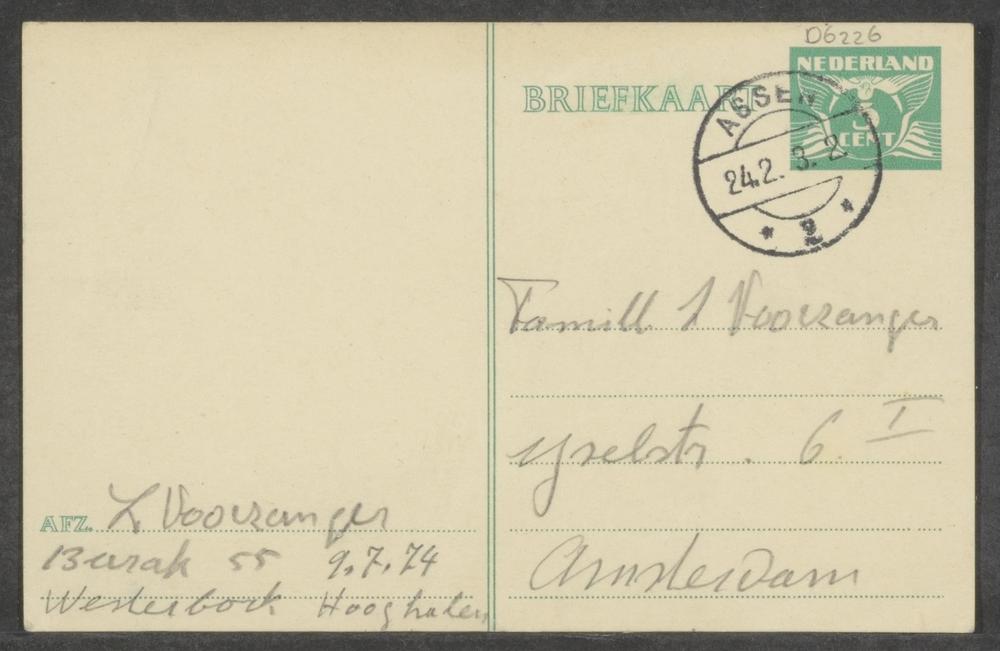 D6226
NEDERLAND
5
CENT
BRIEFKAART
ASSEN
24.2. 3. 2
* 2 *
Famill L Voorzanger
ijselstr. 6 I
Amsterdam
AFZ. L Voorzanger
Barak 55 9.7.74
Westerbork Hooghalen